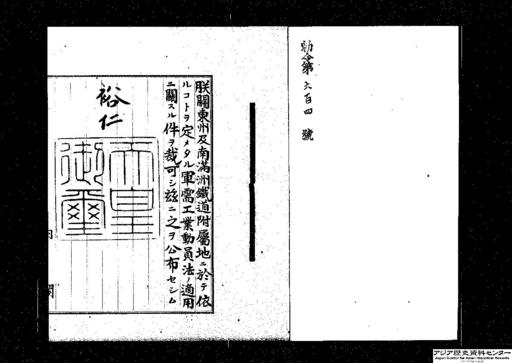 勅令第六百四號
朕關東州及南滿洲鐵道附屬地ニ於テ依
ルコトヲ定メタル軍需工業動員法ノ適用
ニ關スル件ヲ裁可シ茲ニ之ヲ公布セシム
裕仁
天皇
御璽
内
閣
アジア歴史資料センター
Japan Center for Asian Historical Records